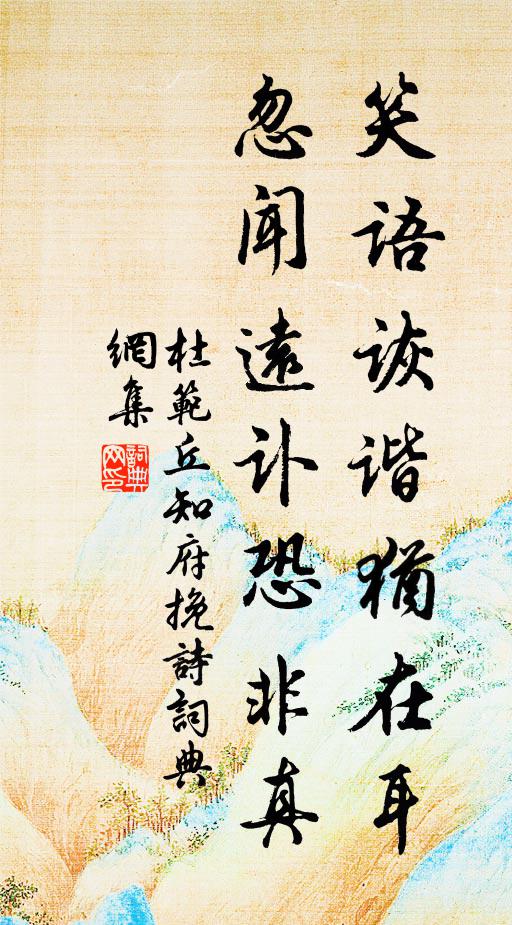 笑语诙谐猶在耳
忽闻遠讣恐非真
杜範丘知府挽詩詞典
網集
詞典
网印